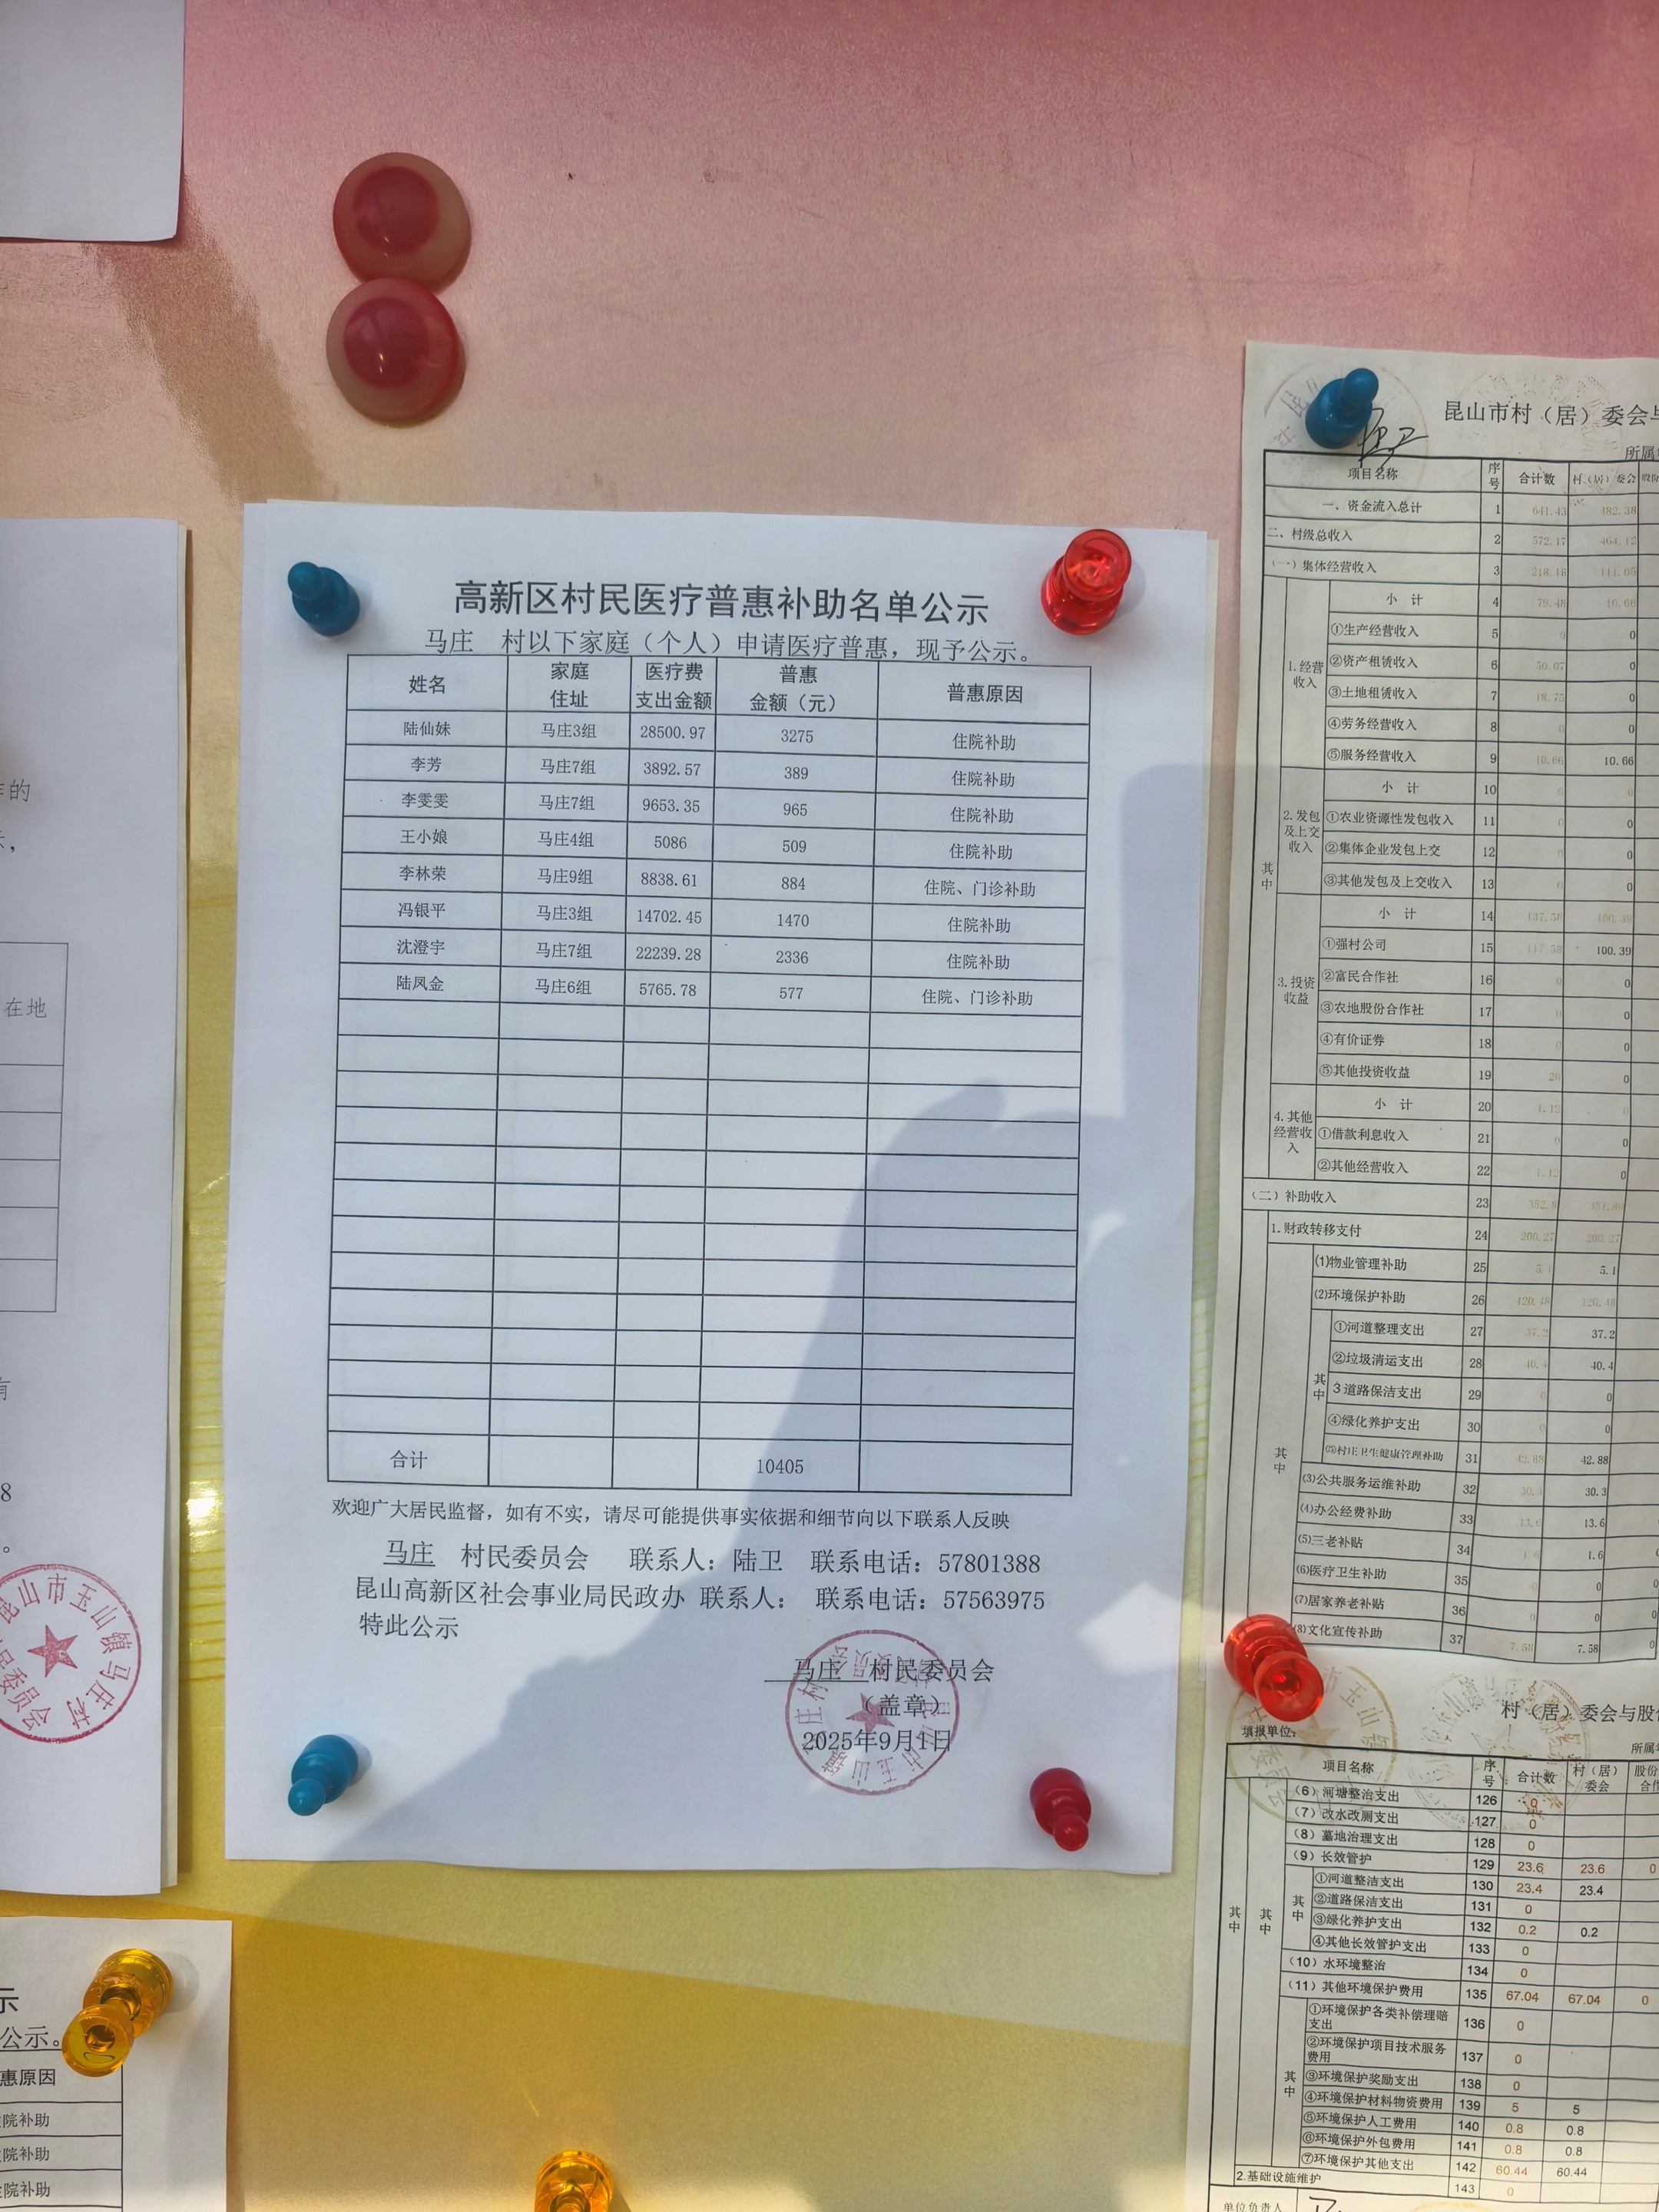 高新区村民医疗普惠补助名单公示
马庄 村以下家庭（个人）申请医疗普惠，现予公示。
姓名 家庭住址 医疗费支出金额 普惠金额（元） 普惠原因
陆仙妹 马庄3组 28500.97 3275 住院补助
李芳 马庄7组 3892.57 389 住院补助
李雯雯 马庄7组 9653.35 965 住院补助
王小娘 马庄4组 5086 509 住院补助
李林荣 马庄9组 8838.61 884 住院、门诊补助
冯银平 马庄3组 14702.45 1470 住院补助
沈澄宇 马庄7组 22239.28 2336 住院补助
陆凤金 马庄6组 5765.78 577 住院、门诊补助
合计 10405
欢迎广大居民监督，如有不实，请尽可能提供事实依据和细节向以下联系人反映
马庄 村民委员会 联系人：陆卫 联系电话：57801388
昆山高新区社会事业局民政办 联系人： 联系电话：57563975
特此公示
马庄 村民委员会
（盖章）
2025年9月1日
的
在地
有
8
。
昆山市玉山镇马庄村
示
公示。
惠原因
院补助
院补助
院补助
昆山市村（居）委会与
所属
项目名称 序号 合计数 村（居）委会
一、资金流入总计 1 641.43 482.38
二、村级总收入 2 572.17 464.12
（一）集体经营收入 3 218.18 111.05
1.经营收入
小 计 4 79.48 10.66
①生产经营收入 5 0 0
②资产租赁收入 6 50.07 0
③土地租赁收入 7 18.75 0
④劳务经营收入 8 0 0
⑤服务经营收入 9 10.66 10.66
其中
2.发包及上交收入
小 计 10 0 0
①农业资源性发包收入 11 0 0
②集体企业发包上交 12 0 0
③其他发包及上交收入 13 0 0
3.投资收益
小 计 14 137.58 100.39
①强村公司 15 117.58 100.39
②富民合作社 16 0 0
③农地股份合作社 17 0 0
④有价证券 18 0 0
⑤其他投资收益 19 20 0
4.其他经营收入
小 计 20 1.12 0
①借款利息收入 21 0 0
②其他经营收入 22 1.12 0
（二）补助收入 23 352.8
1.财政转移支付 24 200.27 200.27
其中
(1)物业管理补助 25 5.1 5.1
(2)环境保护补助 26 120.48 120.48
其中
①河道整理支出 27 37.2 37.2
②垃圾清运支出 28 40.4 40.4
3道路保洁支出 29 0 0
④绿化养护支出 30 0 0
⑤村庄卫生健康管理补助 31 42.88 42.88
(3)公共服务运维补助 32 30.3 30.3
(4)办公经费补助 33 13.6 13.6
(5)三老补贴 34 1.6 1.6
(6)医疗卫生补助 35 0 0
(7)居家养老补贴 36 0 0
(8)文化宣传补助 37 7.58 7.58 0
村（居）委会与股份
填报单位：
所属
项目名称 序号 合计数 村（居）委会 股份合作
其中
其中
（6）河塘整治支出 126 0
（7）改水改厕支出 127 0
（8）墓地治理支出 128 0
（9）长效管护 129 23.6 23.6 0
其中
①河道整洁支出 130 23.4 23.4
②道路保洁支出 131 0
③绿化养护支出 132 0.2 0.2
④其他长效管护支出 133 0
（10）水环境整治 134 0
（11）其他环境保护费用 135 67.04 67.04 0
其中
①环境保护各类补偿理赔支出 136 0
②环境保护项目技术服务费用 137 0
③环境保护奖励支出 138 0
④环境保护材料物资费用 139 5 5
⑤环境保护人工费用 140 0.8 0.8
⑥环境保护外包费用 141 0.8 0.8
⑦环境保护其他支出 142 60.44 60.44
2.基础设施维护 143 0
单位负责人